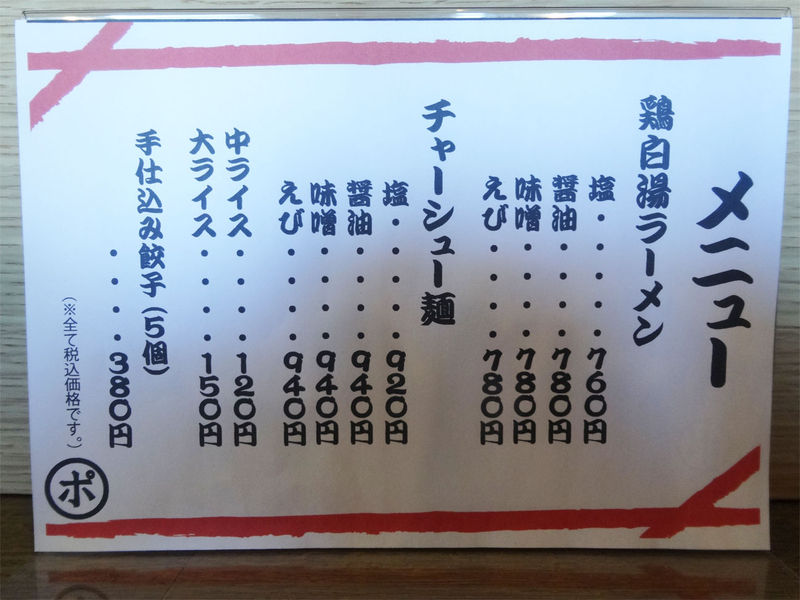 メニュー
鶏白湯ラーメン
塩・・・・・760円
醤油・・・・780円
味噌・・・・780円
えび・・・・780円
チャーシュー麺
塩・・・・・920円
醤油・・・・940円
味噌・・・・940円
えび・・・・940円
中ライス・・・・120円
大ライス・・・・150円
手仕込み餃子(5個)
・・・・380円
(※全て税込価格です。)
ポ